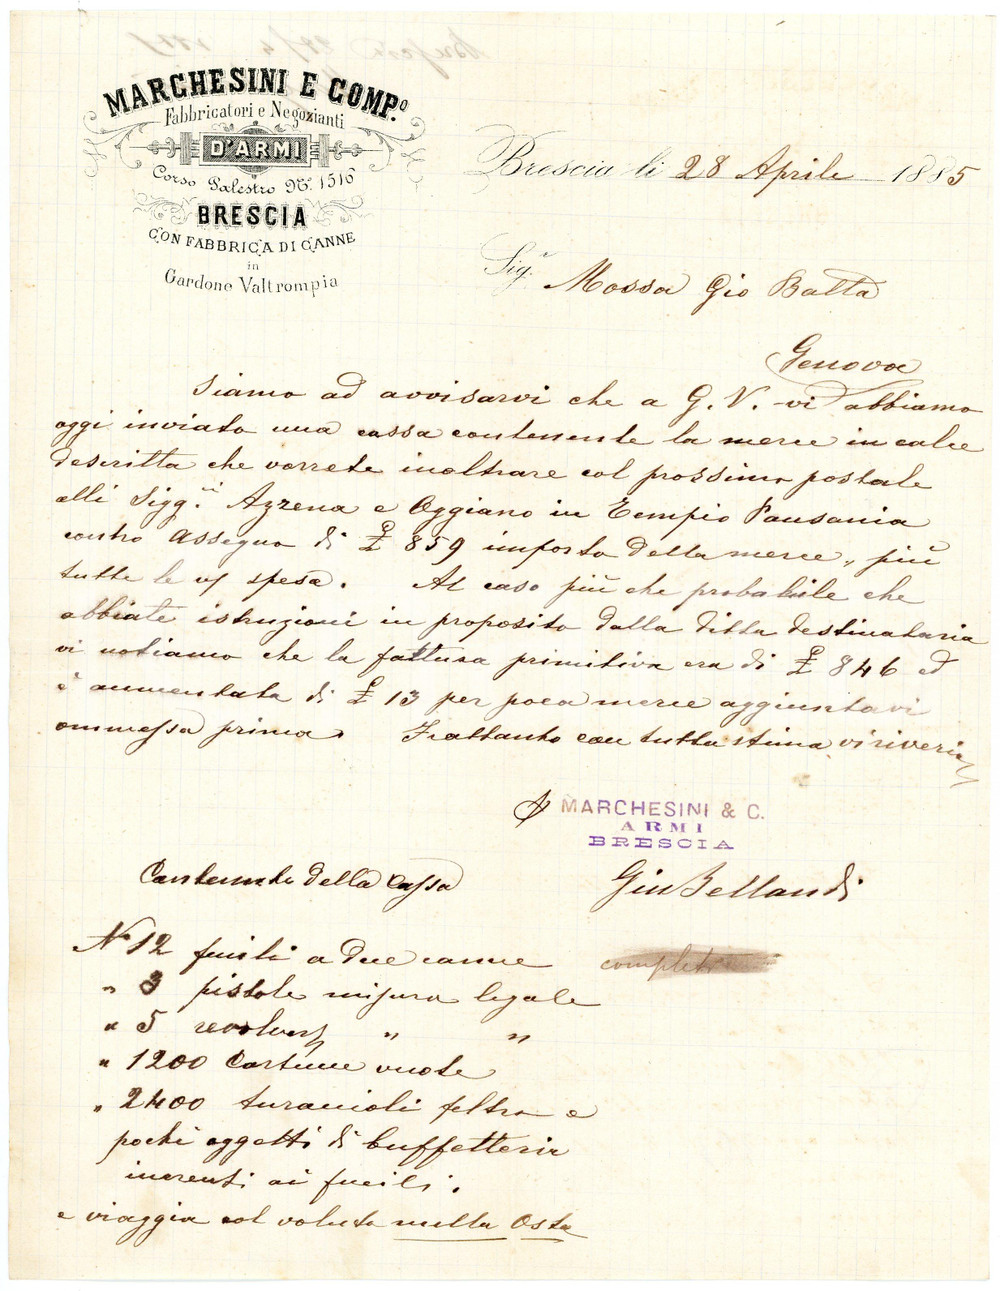 MARCHESINI E COMP.º
Fabbricatori e Negozianti
D'ARMI
Corso Palestro Nº. 1516
BRESCIA
CON FABBRICA DI CANNE
in
Gardone Valtrompia
Brescia li 28 Aprile 1885
Sig.r Mossa Gio Batta
Genova
Siamo ad avvisarvi che a G. V. vi abbiamo
oggi inviato una cassa contenente la merce in calce
descritta che vorrete inoltrare col prossimo postale
alli Sigg.ri Azzena e Oggiano in Tempio Pausania
contro assegno di £ 859 importo della merce, più
tutte le spese. Al caso più che probabile che
abbiate istruzioni in proposito dalla ditta destinataria
vi notiamo che la fattura primitiva era di £ 846 ed
è aumentata di £ 13 per poca merce aggiuntavi
ommessa prima. Frattanto con tutta stima vi riveria
MARCHESINI & C.
ARMI
BRESCIA
Contenuto della Cassa
Giu Bellandi
Nº 12 fucili a due canne
completi
" 3 pistole misura legale
" 5 revolvers " "
" 1200 Cartucce vuote
" 2400 turaccioli feltro e
pochi oggetti di buffetteria
inerenti ai fucili.
e viaggia col voluto nulla Osta